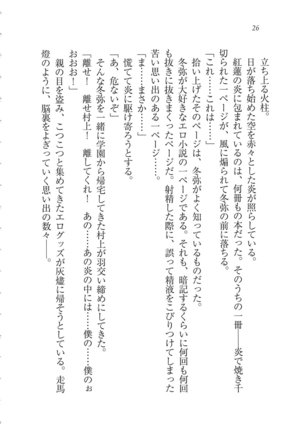 26
立ち上る火柱。
日が落ち始めた空を赤々とした炎が照らしている。
紅蓮の炎に包まれているのは、何冊もの本だった。そのうちの一冊――炎で焼き千
切られた一ページが、風に煽られて冬弥の前に落ちる。
「これ……これは――」
拾い上げたそのページは、冬弥がよく知っているものだった。
冬弥が大好きなエロ小説の一ページである。それも、暗記するくらいに何回も何回
も抜きに抜きまくったページだ。射精した際に、誤って精液をこびりつけてしまった
苦い思い出のある一ページ……。
「ま……まさかっ……」
慌てて炎に駆け寄ろうとする。
「あ、危ないぞっ」
冬弥と一緒に学園から帰宅してきた村上が羽交い締めにしてきた。
「離せ！　離せ村上！　離してくれ！　あの……あの炎の中には……僕の……僕のぉ
おおお！」
親の目を盗み、こつこつと集めてきたエログッズが灰燼に帰そうとしている。走馬
燈のように、脳裏をよぎっていく思い出の数々――。